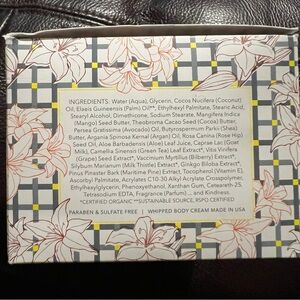 INGREDIENTS: Water (Aqua), Glycerin, Cocos Nucifera (Coconut)
Oil, Elaeis Guineensis (Palm) Oil**, Ethylhexyl Palmitate, Stearic Acid,
Stearyl Alcohol, Dimethicone, Sodium Stearate, Mangifera Indica
(Mango) Seed Butter, Theobroma Cacao Seed (Cocoa) Butter,
Persea Gratissima (Avocado) Oil, Butyrospermum Parkii (Shea)
Butter, Argania Spinosa Kernal (Argan) Oil, Rosa Canina (Rose Hip)
Seed Oil, Aloe Barbadensis (Aloe) Leaf Juice, Caprae Lac (Goat
Milk), Camellia Sinensis Green Tea Leaf Extract*, Vitis Vinifera
(Grape) Seed Extract*, Vaccinium Myrtillus (Bilberry) Extract*,
Silybum Marianum (Milk Thistle) Extract*, Ginkgo Biloba Extract*,
Pinus Pinaster Bark (Maritime Pine) Extract, Tocopherol (Vitamin E),
Ascorbyl Palmitate, Acrylates C10-30 Alkyl Acrylate Crosspolymer,
Ethylhexylglycerin, Phenoxyethanol, Xanthan Gum, Ceteareth-25,
Tetrasodium EDTA, Fragrance (Parfum)... and Kindness.
*CERTIFIED ORGANIC **SUSTAINABLE SOURCE, RSPO CERTIFIED
PARABEN & SULFATE FREE | WHIPPED BODY CREAM MADE IN USA